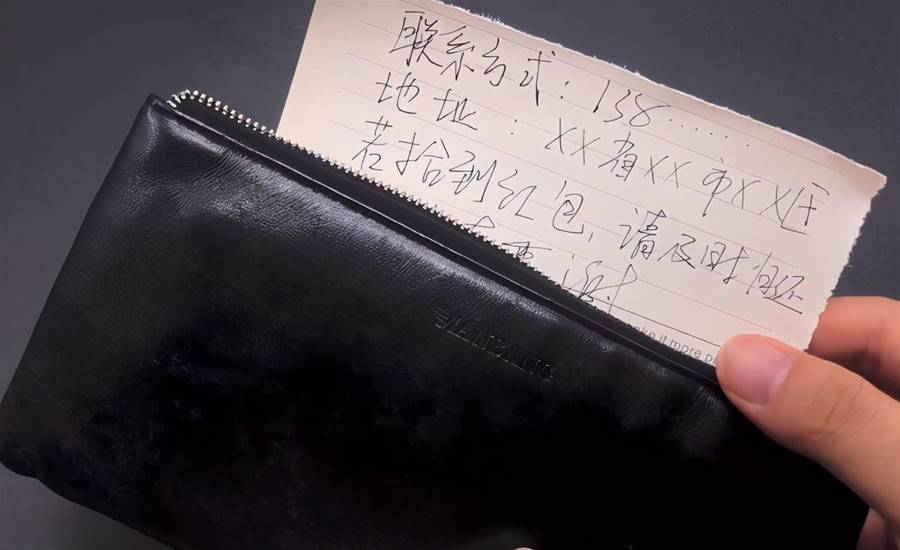 联系方式：138......
地址：XX省XX市XX区
若拾到红包，请及时归还
重谢